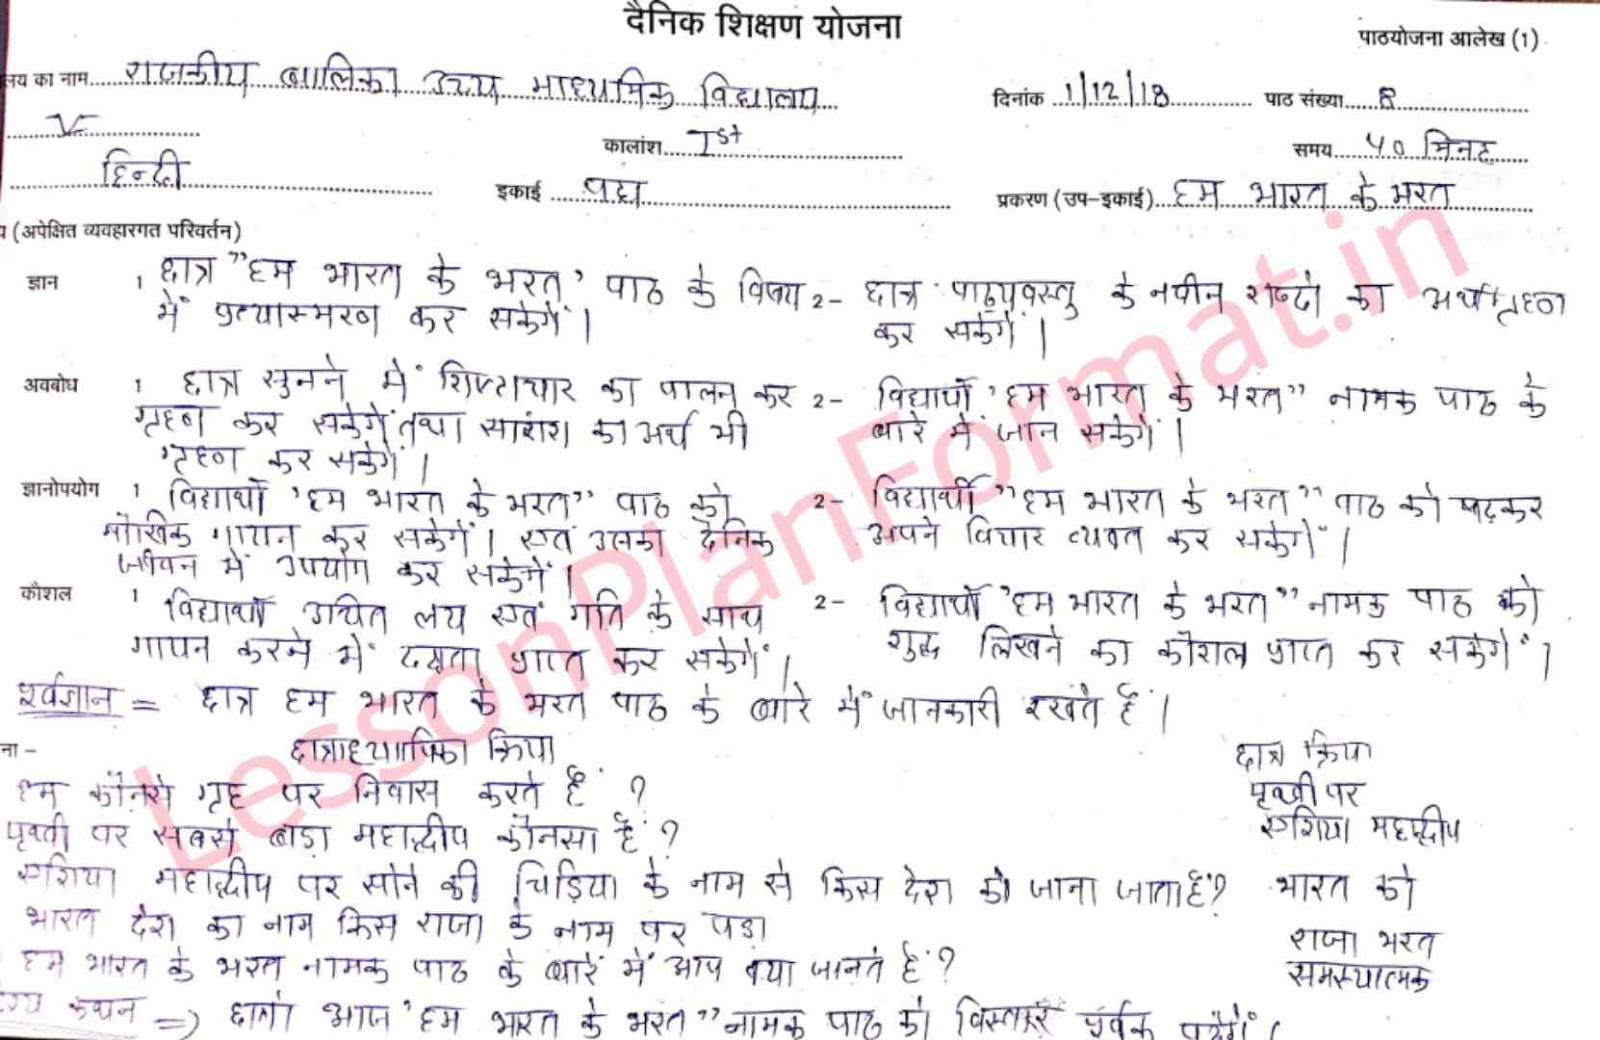 दैनिक शिक्षण योजना
पाठयोजना आलेख (1)
लय का नाम राजकीय बालिका उच्च माध्यमिक विद्यालय दिनांक 1/12/18 पाठ संख्या 8
V कालांश Ist समय 40 मिनट
हिन्दी इकाई पद्य प्रकरण (उप-इकाई) हम भारत के भरत
य (अपेक्षित व्यवहारगत परिवर्तन)
ज्ञान 1 छात्र "हम भारत के भरत' पाठ के विषय 2- छात्र पाठ्यवस्तु के नवीन शब्दो का अर्थग्रहण
में प्रत्यास्मरण कर सकेगें। कर सकेगें।
अवबोध 1 छात्र सुनने में शिष्टाचार का पालन कर 2- विद्यार्थी 'हम भारत के भरत" नामक पाठ के
ग्रहण कर सकेगें तथा सारांश का अर्थ भी बारे में जान सकेगें।
ग्रहण कर सकेगें।
ज्ञानोपयोग 1 विद्यार्थी 'हम भारत के भरत" पाठ को 2- विद्यार्थी "हम भारत के भरत" पाठ को पढ़कर
मौखिक गायन कर सकेगें। एवं उसका दैनिक अपने विचार व्यक्त कर सकेगें।
जीवन में उपयोग कर सकेगें।
कौशल 1 विद्यार्थी उचित लय एवं गति के साथ 2- विद्यार्थी 'हम भारत के भरत" नामक पाठ को
गायन करने में दक्षता प्राप्त कर सकेगें। शुद्ध लिखने का कौशल प्राप्त कर सकेगें।
पूर्वज्ञान = छात्र हम भारत के भरत पाठ के बारे में जानकारी रखते हैं।
ना - छात्राध्यापिका क्रिया छात्र क्रिया
हम कौनसे ग्रह पर निवास करते हैं ? पृथ्वी पर
पृथ्वी पर सबसे बड़ा महाद्वीप कौनसा हैं ? एशिया महाद्वीप
एशिया महाद्वीप पर सोने की चिड़िया के नाम से किस देश को जाना जाता हैं? भारत को
भारत देश का नाम किस राजा के नाम पर पड़ा राजा भरत
हम भारत के भरत नामक पाठ के बारें में आप क्या जानते हैं ? समस्यात्मक
श्य कथन => छात्रों आज 'हम भारत के भरत" नामक पाठ को विस्तार पूर्वक पढेगें।
LessonPlanFormat.in